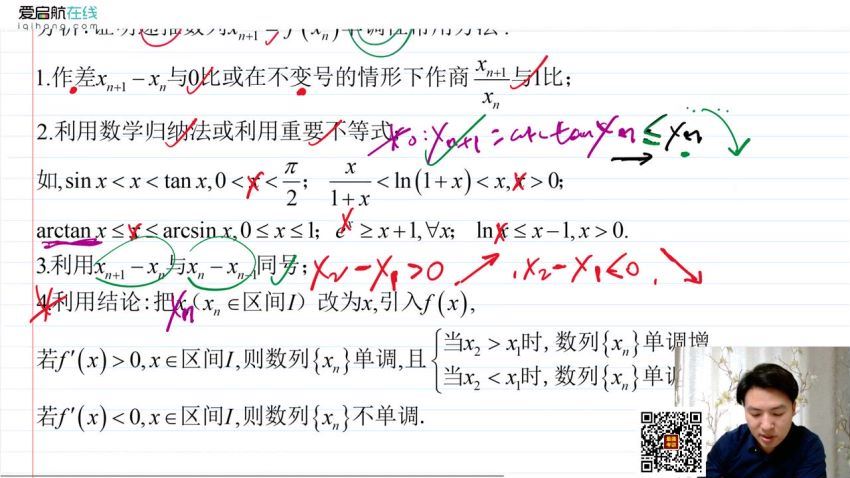 爱启航在线
iqihang.com
分析:证明递推数列xₙ₊₁ = f(xₙ)单调性常用方法:
1.作差xₙ₊₁ − xₙ与0比或在不变号的情形下作商 xₙ₊₁/xₙ 与1比;
2.利用数学归纳法或利用重要不等式. xₙ₊₁ = arctan xₙ ≤ xₙ
如,sin x < x < tan x, 0 < x < π/2; x/(1+x) < ln(1+x) < x, x > 0;
arctan x ≤ x ≤ arcsin x, 0 ≤ x ≤ 1; eˣ ≥ x+1, ∀x; ln x ≤ x−1, x > 0.
3.利用xₙ₊₁ − xₙ与xₙ − xₙ₋₁同号; x₂ − x₁ > 0 ↗, x₂ − x₁ < 0. ↘
4.利用结论:把xₙ(xₙ ∈区间I)改为x,引入f(x),
若f′(x) > 0, x∈区间I,则数列{xₙ}单调,且{当x₂ > x₁时,数列{xₙ}单调增
当x₂ < x₁时,数列{xₙ}单调
若f′(x) < 0, x∈区间I,则数列{xₙ}不单调.